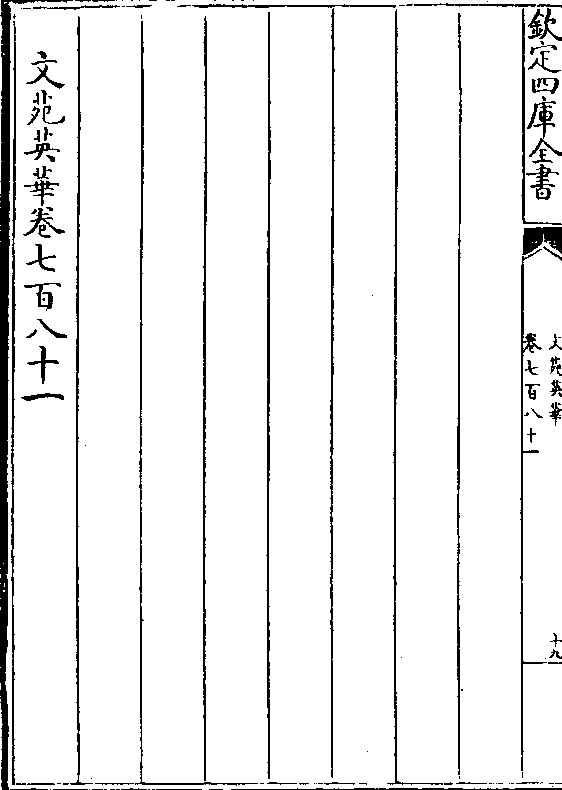 欽定四庫全書
文苑英華
卷七百八十一
十九
文苑英華卷七百八十一